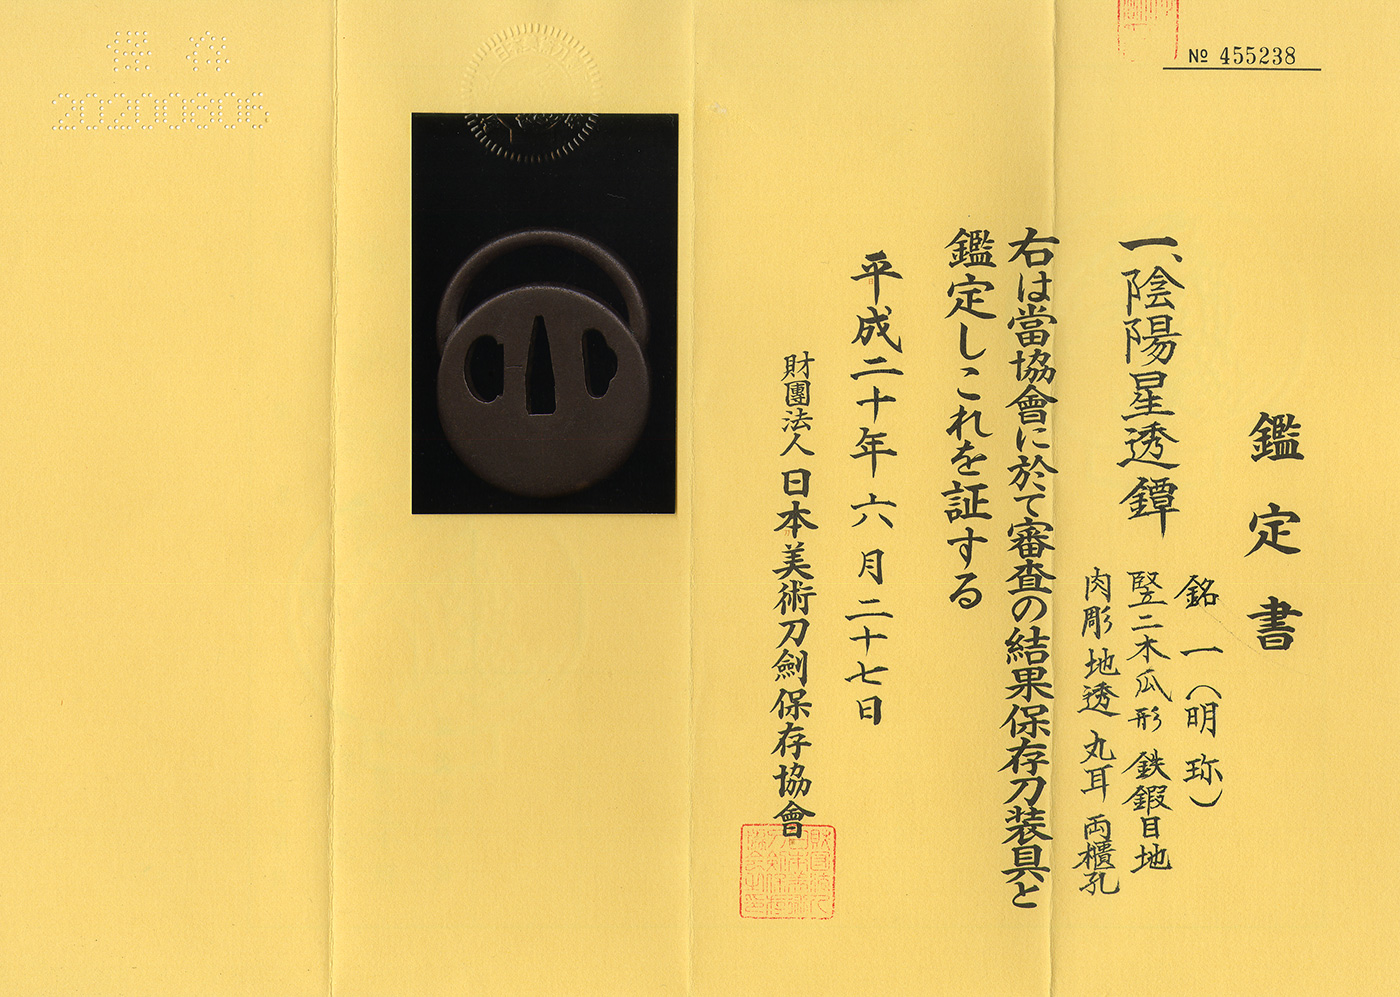 № 455238
鑑定書
一、陰陽星透鐔
銘 一(明珎)
竪二木瓜形 鉄鍜目地
肉彫地透 丸耳 両櫃孔
右は當協會に於て審査の結果保存刀装具と
鑑定しこれを証する
平成二十年六月二十七日
財團法人 日本美術刀劍保存協會
保存
20200606